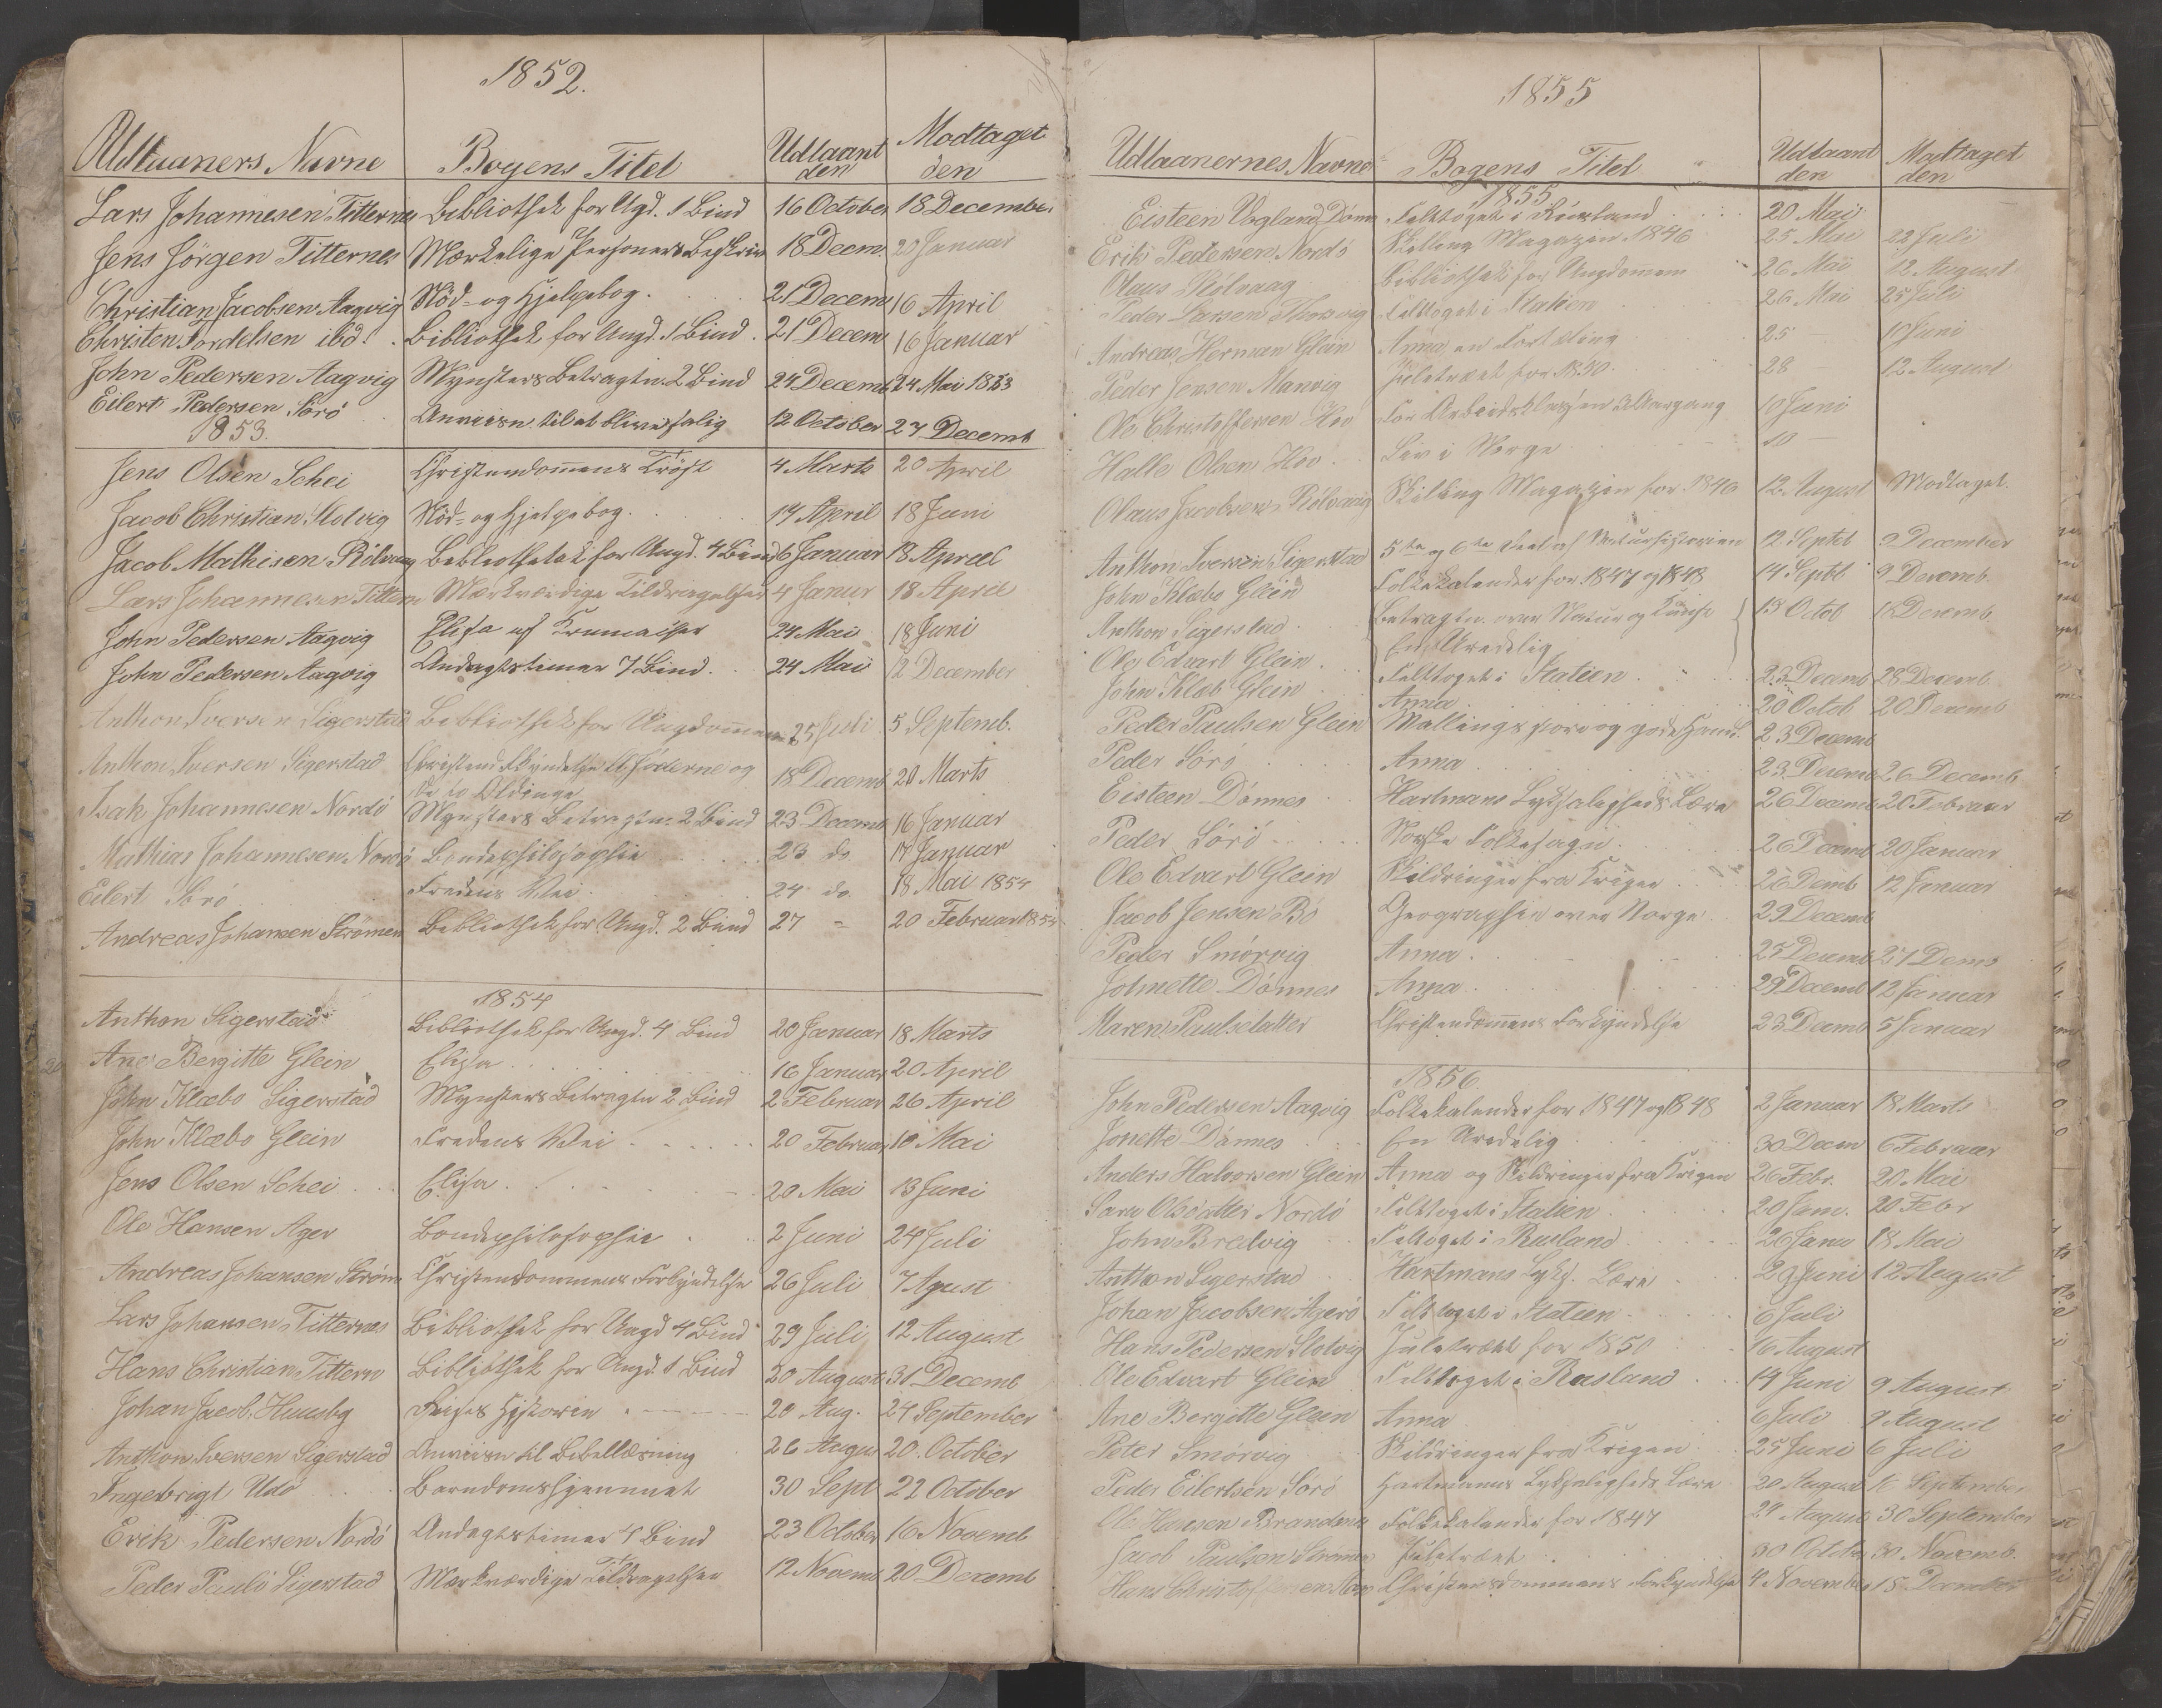 1852.
Udlaaners Navne Bogens Titel Udlaant den Modtaget den
Lars Johannesen Titternes Bibliothek for Ugd. 1 Bind 16 October 18 December
Jens Jörgen Titternes Mærkelige Personers Beskriv 18 Decem. 20 Januar
Christian Jacobsen Aagvig Nöd- og Hjelpebog. 21 Decem 16 April
Christen Tordelsen ibd. Bibliothek for Ungd. 1 Bind. 21 Decem 16 Januar
John Pedersen Aagvig Mynsters Betragtn. 2 Bind 24 Decemb 24 Mai 1853
Eilert Pedersen Sörö Anviisn. til at blive salig 12 October 27 Decemb
1853.
Jens Olsen Schei Christendomens Tröst 4 Marts 20 April
Jacob Christian Slotvig Nöd- og Hjelpebog. 17 April 18 Juni
Jacob Mathisen Rölvaag Bebliothekek for Ungd. 4 Bind 6 Januar 18 Apriel
Lars Johannesen Tittern Mærkværdige Tildragelser 4 Janur 18 April
John Pedersen Aagvig Elisa af Krumaiser 24 Mai 18 Juni
John Pedersen Aagvig Andagtstimer 7 Bind. 24 Mai 12 December
Anthon Iversen Sigerstad Bibliothek for Ungdommen 25 Juli 5 Septemb.
Anthon Iversen Sigerstad Christend. Forkyndelse til Jöderne og 18 Decemb 20 Marts
de 10 Oldinge
Isak Johannesen Nordö Mynsters Betragtn. 2 Bind 23 Decemb 16 Januar
Mathias Johannesen Nordö Bondephilosophie 23 do 17 Januar
Eilert Sörö Fredens Vei. 24 do. 18 Mai 1854
Andreas Johansen Strømen Bibliothek for Ungd. 2 Bind 27 = 20 Februar 1854
1854
Anthon Sigerstad Bibliothek for Ungd. 4 Bind 20 Januar 18 Marts
Ane Bergitte Glein Elisa 16 Januar 20 April
John Klæbo Sigerstad Mynsters Betragtn 2 Bind 2 Februar 26 April
John Klæbo Glein Fredens Vei 20 Februar 10 Mai
Jens Olsen Schei Elisa 20 Mai 13 Juni
Ole Hansen Ager Bondephilosophie 2 Juni 24 Juli
Andreas Johansen Strøm Christendommens Forkyndelse 26 Juli 7 Agust
Lars Johansen Titternes Bibliothek for Ungd 4 Bind 29 Juli 12 August
Hans Christian Tittern Bibliothek for Ungd. 1 Bind 20 August 31 Decemb
Johan Jacob. Husby Historien 20 Aug. 24 September
Anthon Iversen Sigerstad Anviisn til Bibellæsning 26 August 20. October
Ingebrigt Udö Barndomshjemmet 30 Sept 22 October
Erik Pedersen Nordö Andagtstimer 4 Bind 23 October 16 Novemb
Peder Pauls Sigerstad Mærkværdige Tildragelser 12 Novemb 20 Decemb
1855
Udlaanernes Navne Bogens Titel Udlaant den Modtaget den
1855
Eisteen Vogland Dönn Felttoget i Rusland 20 Mai
Erik Pedersen Nordö Skilling Magazin 1846 25 Mai 22 Juli
Olaus Rölvaag Bibliothek for Ungdommen 26 Mai 12 August
Peder Larsen Thorsvig Felttoget i Italien 26 Mai 25 Juli
Andreas Herman Glein Anna, en Fortælling 25 10 Juni
Peder Jensen Marvig Juletræet for 1850. 28 12 August
Ole Christoffersen Hov For Arbeidsklassen Aargang 10 Juni
Halle Olsen Hov Liv i Norge 10
Olaus Jacobsen Rölvaag Skilling Magazin for 1846 12 August Modtaget.
Anthon Iversen Sigerstad 5te og 6te Deel af Naturhistorien 12 Septeb 9 December
John Klæbo Glein Folkekalender for 1847 og 1848 14 Septb 9 Decemb.
Anthon Sigerstad Betragtn. over Natur og Kunst 13 Octob 16 Decemb.
Ole Edvart Glein. En Uredelig
Felttoget i Italien 23 Decemb 28 Decemb
John Klæb Glein Anna 20 Octob 20 Decemb
Peder Paulsen Glein Mallings store og gode Handl. 23 Decemb
Peder Sörö Anna 23 Decemb 26 Decemb
Eisteen Dönnes Hartmans Lyksaligheds Lære 26 Decemb 20 Februar
Peder Sörö Norske Folkesagn. 26 Decemb 20 Januar
Ole Edvart Glein Skildringer fra Krigen 26 Demb 12 Januar
Jacob Jensen Bö Geographie over Norge 29 Decemb
Peder Smörvig Anna. 25 Decemb 27 Demb
Johnette Dönnes Anna. 29 Decemb 12 Januar
Maren Paulsdatter Christendommens Forkyndelse 23 Decemb 5 Januar
1856.
John Pedersen Aagvig Folkekalender for 1847 og 1848 2 Januar 18 Marts
Jonette Dönnes En Uredelig 30 Decem 6 Februar
Anders Halvorsen Glein Anna og Skildringer fra Krigen 26 Febr. 20 Mai
Sara Olsdatter Nordö Felttoget i Italien 20 Jan. 20 Febr
John Bredvig Feltoget i Rusland 26 Janu 18 Mai
Anthon Sigerstad Hartmans Lyks. Lære 29 Juni 12 August
Johan Jacobsen Agerö Felttoget i Italien 6 Juli
Hans Pedersen Slotvig Juletræet for 1850 16 August
Ole Edvart Glein Felttoget i Rusland 14 Juni 9 August
Ane Bergitte Glein Anna 6 Juli 9 August
Peter Smörvig Skildringer fra Krigen 25 Juni 6 Juli
Peder Eilertsen Sörö Hartmans Lyksaligheds Lære 20 August 16 September
Ole Hansen Folkekalender for 1847 24 August 30 September
Jacob Paulsen Strømmen Juletræet 30 October 30 Novemb.
Hans Christendommens Forkyndelse 4 November 15 December